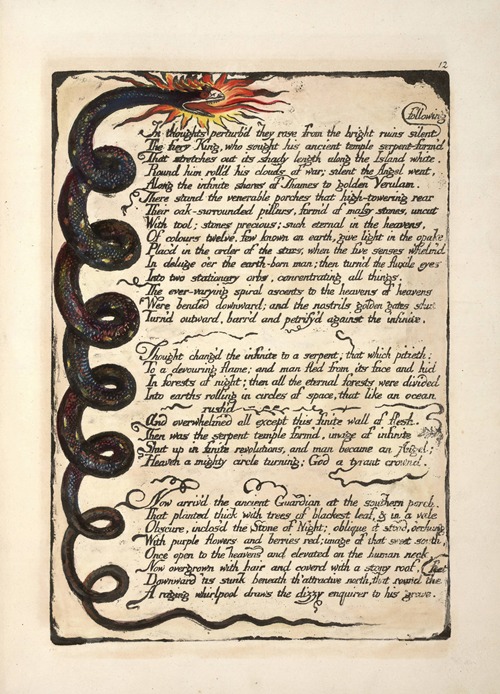 12
following
In thoughts perturb'd they rose from the bright ruins silent
The fiery King, who sought his ancient temple serpent-form'd
That stretches out its shady length along the Island white.
Round him roll'd his clouds of war; silent the Angel went,
Along the infinite shores of Thames to golden Verulam.
There stand the venerable porches that high-towering rear
Their oak-surrounded pillars, form'd of massy stones, uncut
With tool; stones precious; such eternal in the heavens,
Of colours twelve, few known on earth, give light in the opake
Plac'd in the order of the stars, when the five senses whelm'd
In deluge o'er the earth-born man; then turn'd the fluxile eyes
Into two stationary orbs, concentrating all things.
The ever-varying spiral ascents to the heavens of heavens
Were bended downward; and the nostrils golden gates shut
Turn'd outward, barr'd and petrify'd against the infinite.
Thought chang'd the infinite to a serpent; that which pitieth:
To a devouring flame; and man fled from its face and hid
In forests of night; then all the eternal forests were divided
Into earths rolling in circles of space, that like an ocean
rush'd
And overwhelmed all except this finite wall of flesh.
Then was the serpent temple form'd, image of infinite
Shut up in finite revolutions, and man became an Angel;
Heaven a mighty circle turning; God a tyrant crown'd.
Now arriv'd the ancient Guardian at the southern porch,
That planted thick with trees of blackest leaf, & in a vale
Obscure, inclos'd the Stone of Night; oblique it stood, o'erhung
With purple flowers and berries red; image of that sweet south,
Once open to the heavens and elevated on the human neck,
Now overgrown with hair and coverd with a stony roof,
Downward 'tis sunk beneath th' attractive north, that round the feet
A raging whirlpool draws the dizzy enquirer to his grave.